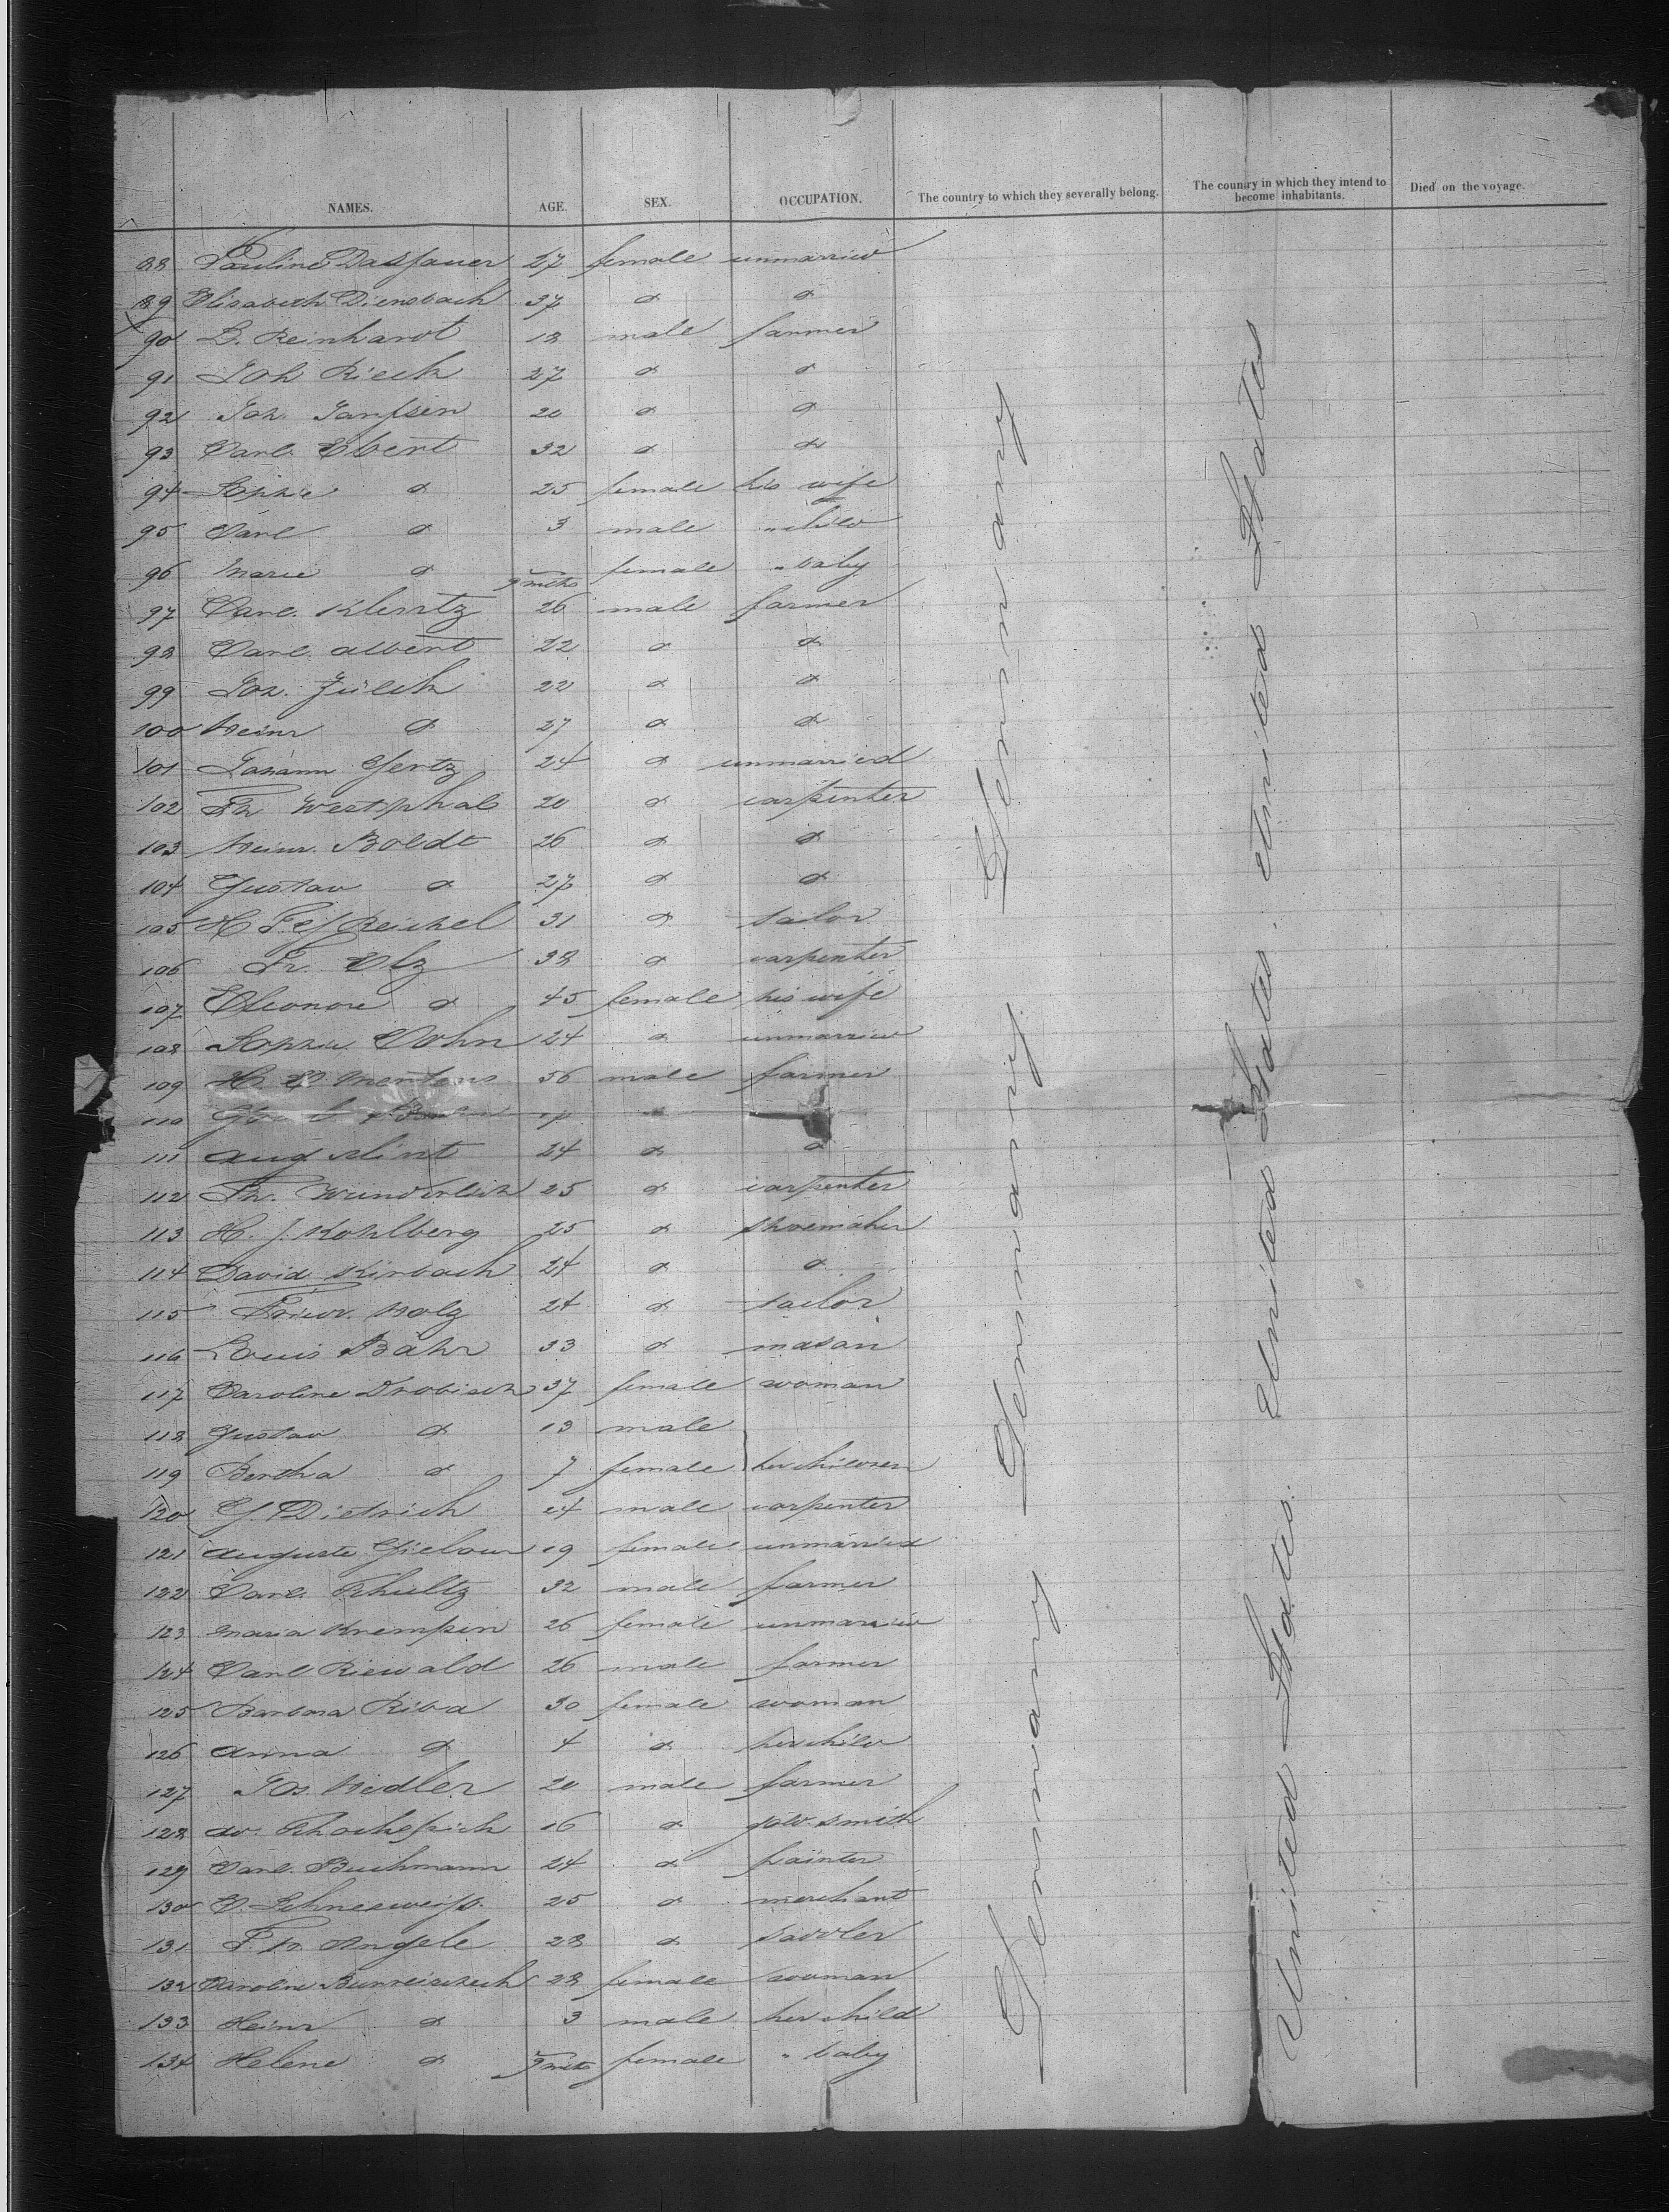 NAMES. AGE. SEX. OCCUPATION. The country to which they severally belong. The country in which they intend to become inhabitants. Died on the voyage.
88 Pauline Dassauer 27 female unmarried
89 Elisabeth Diensbach 37 do do
90 G. Reinhardt 18 male farmer
91 Joh Rieck 27 do do
92 Joh. Janssen 20 do do
93 Carl Ebert 32 do do
94 Sophie do 25 female his wife
95 Carl do 3 male " child
96 Marie do 9 mths female " baby
97 Carl. Klentz 26 male farmer
98 Carl. Albert 22 do do
99 Joh. Jülch 22 do do
100 Heinr do 27 do do
101 Johann Gertz 24 do unmarried
102 Fr Westphal 20 do carpenter
103 Heinr. Boldt 26 do do
104 Gustav do 27 do do
105 H Reichel 31 do tailor
106 Fr. Elz 38 do carpenter
107 Eleonore do 45 female his wife
108 Sophie Cohn 24 do unmarried
109 H. Mertens 56 male farmer
110
111 Aug Klint 24 do do
112 Fr. Wunderlich 25 do carpenter
113 H. J. Kohlberg 25 do shoemaker
114 David Kirbach 24 do do
115 Friedr. Holz 24 do tailor
116 Louis Bähr 33 do mason
117 Caroline Drobisch 37 female woman
118 Gustav do 13 male
119 Bertha do 7 female her children
120 G. Dietrich 24 male carpenter
121 Auguste Gielow 19 female unmarried
122 Carl. Schultz 32 male farmer
123 Maria Krempin 26 female unmarried
124 Carl Riewald 26 male farmer
125 Barbara Riba 30 female woman
126 Anna do 4 do her child
127 Jos. Hedler 20 male farmer
128 Ad. 16 do gold smith
129 Carl. Buchmann 24 do painter
130 C. Schneeweiss. 25 do merchant
131 Fr. Angele 28 do saddler
132 Caroline 28 female woman
133 Heinr do 3 male her child
134 Helene do 9 mths female " baby
Germany Germany Germany
United States. United States. United States